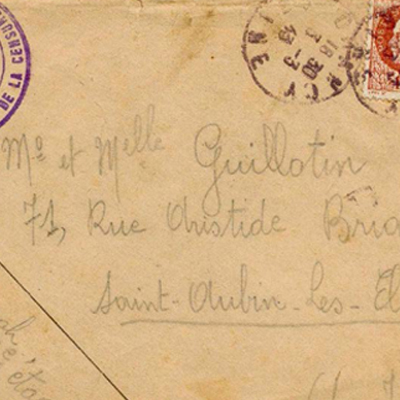 DE LA CENSUR
Mº et Melle Guillotin
71, Rue Aristide Bria
Saint-Aubin-Les-El